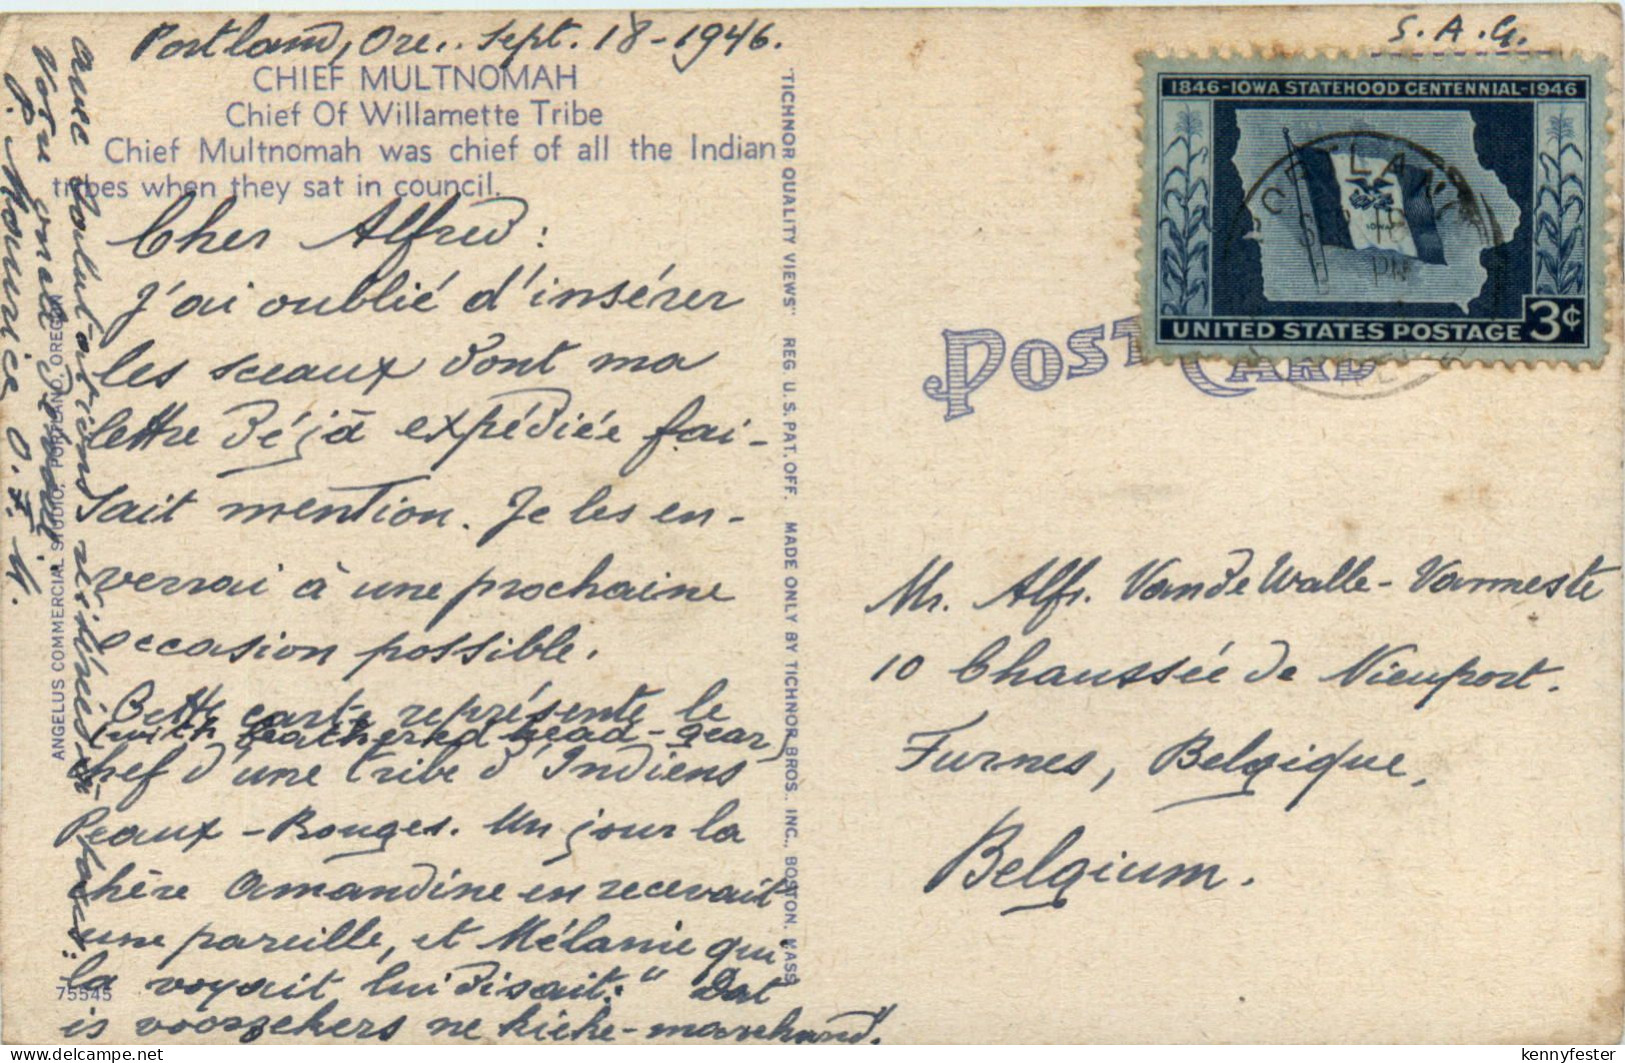 Portland, Ore., Sept. 18-1946.
CHIEF MULTNOMAH
Chief Of Willamette Tribe
Chief Multnomah was chief of all the Indian
tribes when they sat in council.
Cher Alfred:
J'ai oublié d'insérer
les sceaux dont ma
lettre déjà expédiée fai-
sait mention. Je les en-
verrai à une prochaine
occasion possible.
Cette carte représente le
(with feathered head-gear)
chef d'une tribe d'Indiens
Peaux-Rouges. Un jour la
chère Amandine en recevait
une pareille, et Mélanie qui
la voyait lui disait: "Dat
is voorzekers ne kieke-marchand".
avec salutations réitérées à tous:
Votre oncle dévoué,
P. Maurice O.F.M.
ANGELUS COMMERCIAL STUDIO, PORTLAND, OREGON
75545
"TICHNOR QUALITY VIEWS" REG. U.S. PAT. OFF. MADE ONLY BY TICHNOR BROS., INC., BOSTON, MASS.
S.A.G.
1846-IOWA STATEHOOD CENTENNIAL-1946
IOWA
3¢
UNITED STATES POSTAGE
PORTLAND
PM
POST CARD
Mr. Alfr. Van de Walle-Vanmeste
10 Chaussée de Nieuport.
Furnes, Belgique,
Belgium.
kennyfester